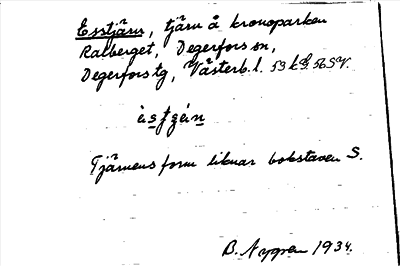 Esstjärn, tjärn å kronoparken
Ralberget, Degerfors sn,
Degerfors tg, Västerb. l. 53 k G. 56 S V.
Tjärnens form liknar bokstaven S.
B. Nygren 1934.